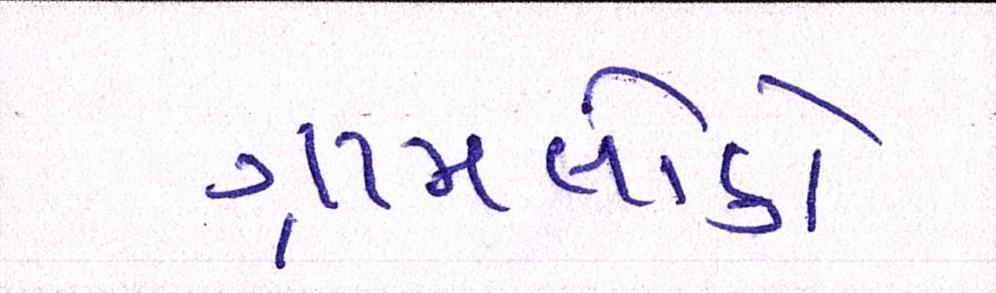 ગ્રામલોકો